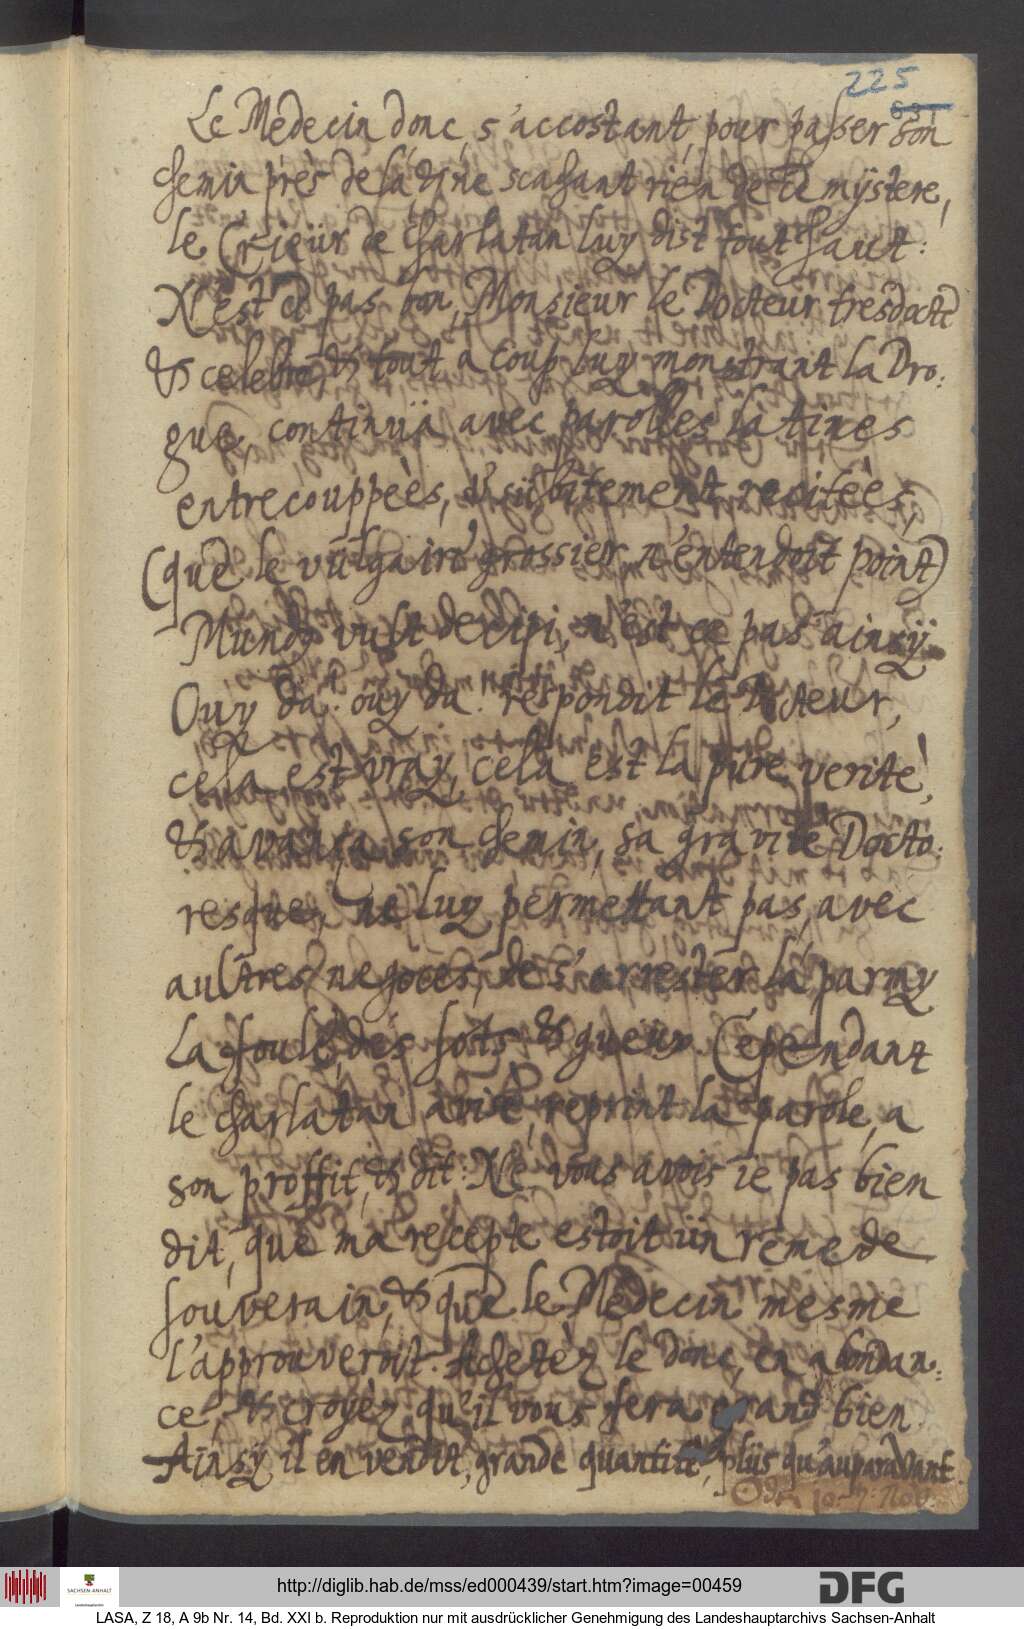 225
Le Medecin donc, s'accostant, pour passer son
chemin près de là, & ne scachant rien de ce mÿstere,
le Crieur de charlatan luy dist tout haut:
N'est ce pas bon, Monsieur le Docteur tresdocte
& celebre, & tout a coup luy monstrant la Dro:
gue, continua avec parolles latines
entrecouppèès, & subitement recitéès,
(que le vulgaire grossier n'entendoit point)
Mundg vult decipi, n'est ce pas ainsÿ
Ouy da: ouy da: respondit le Docteur,
cela est vray, cela est la pure verité,
& avança son chemin, sa gravité Docto:
resque, ne luy permettant pas, avec
aultres negoces, de s'arrester là parmy
la foule, des sots & gueux. Cependant
le charlatan avisé, reprint la parole, a
son proffit, & dit: Ne vous avois ie pas bien
dit, que ma recepte estoit un remede
souverain, & que le Medecin mesme
l'approuveroit. Achetèz le donc, en abondan:
ce, & croyèz, qu'il vous fera grand bien.
Ainsy il en vendit, grande quantité, plus qu'auparavant.
http://diglib.hab.de/mss/ed000439/start.htm?image=00459
SACHSEN-ANHALT
DFG
LASA, Z 18, A 9b Nr. 14, Bd. XXI b. Reproduktion nur mit ausdrücklicher Genehmigung des Landeshauptarchivs Sachsen-Anhalt